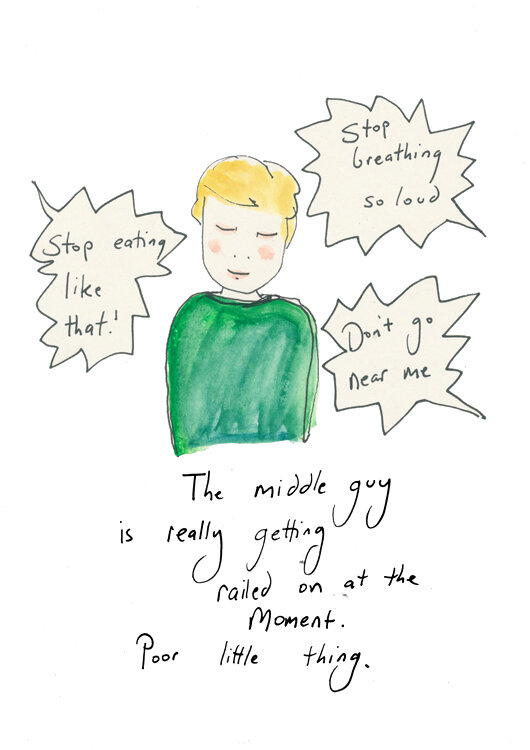 Stop
breathing
so loud
Stop eating
like
that!
Don't go
near me
The middle guy
is really getting
railed on at the
Moment.
Poor little thing.